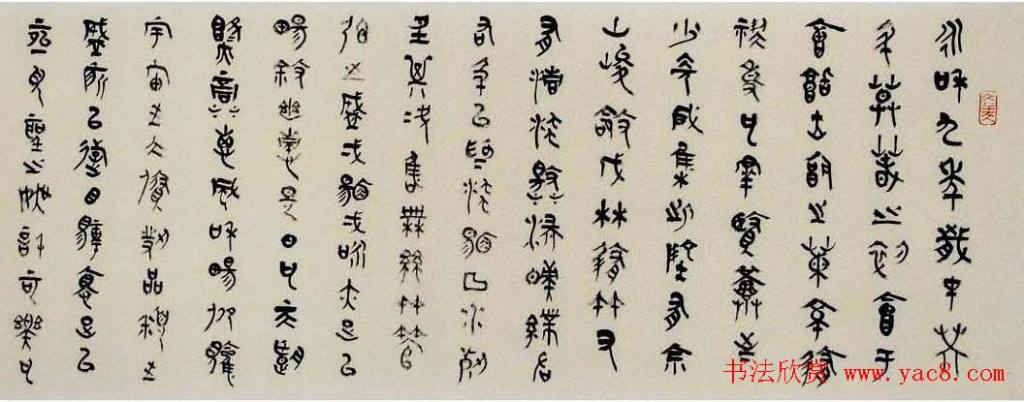 永和九年歲在癸
丑暮春之初會于
會稽山陰之蘭亭脩
禊事也群賢畢至
少長咸集此地有崇
山峻領茂林脩竹又
有清流激湍映帶左
右引以為流觴曲水列
坐其次雖無絲竹管
弦之盛一觴一詠亦足以
暢敘幽情是日也天朗
氣清惠風和暢仰觀
宇宙之大俯察品類之
盛所以遊目騁懷足以
極視聽之娛信可樂也
书法欣赏 www.yac8.com